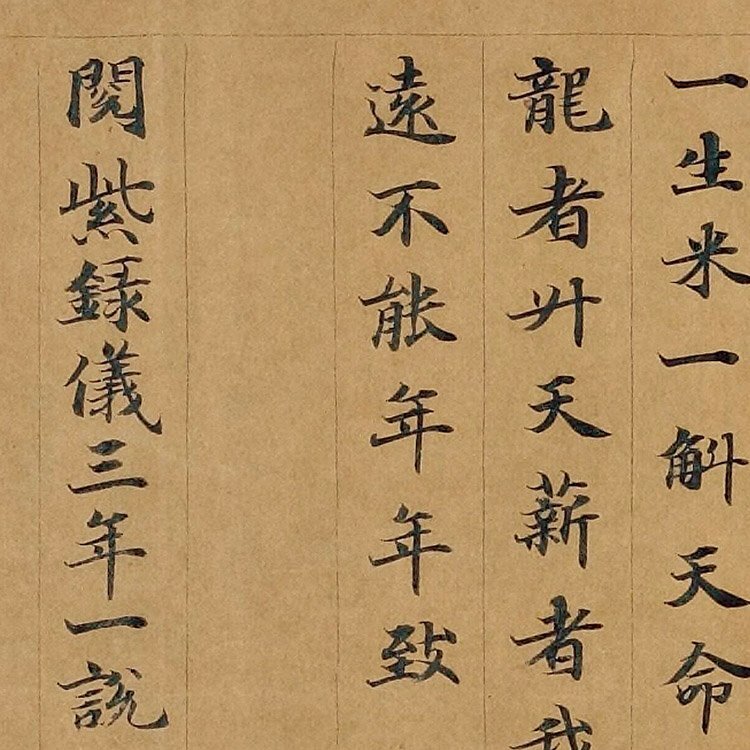 一生米一斛天命
龍者升天薪者我
遠不能年年致
閱紫錄儀三年一說